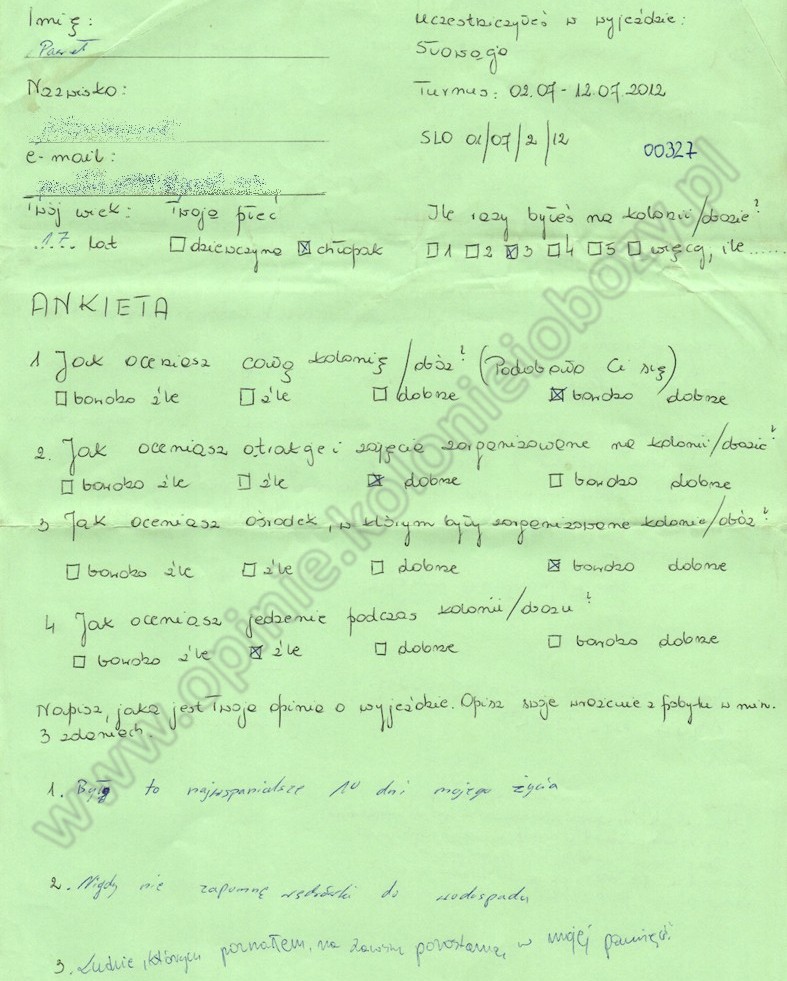 Imię:
Paweł
Nazwisko:
e-mail:
Twój wiek: Twoja płeć
17 lat □ dziewczyna ☒ chłopak
Uczestniczyłeś w wyjeździe:
Słowacja
Turnus: 02.07 - 12.07.2012
SLO 01/07/2/12
00327
Ile razy byłeś na kolonii/obozie?
□ 1 □ 2 ☒ 3 □ 4 □ 5 □ więcej, ile ......
ANKIETA
1 Jak oceniasz całą kolonię/obóz? (Podobało Ci się)
□ bardzo źle □ źle □ dobrze ☒ bardzo dobrze
2. Jak oceniasz atrakcje i zajęcia zorganizowane na kolonii/obozie?
□ bardzo źle □ źle ☒ dobrze □ bardzo dobrze
3 Jak oceniasz ośrodek, w którym były zorganizowane kolonie/obóz?
□ bardzo źle □ źle □ dobrze ☒ bardzo dobrze
4 Jak oceniasz jedzenie podczas kolonii/obozu?
□ bardzo źle ☒ źle □ dobrze □ bardzo dobrze
Napisz, jaka jest Twoja opinia o wyjeździe. Opisz swoje wrażenie z pobytu w min.
3 zdaniach.
1. Było to najwspanialsze 10 dni mojego życia
2. Nigdy nie zapomnę wędrówki do wodospadu
3. Ludzie, których poznałem, na zawsze pozostaną w mojej pamięci!
www.opinie.kolonieiobozy.pl